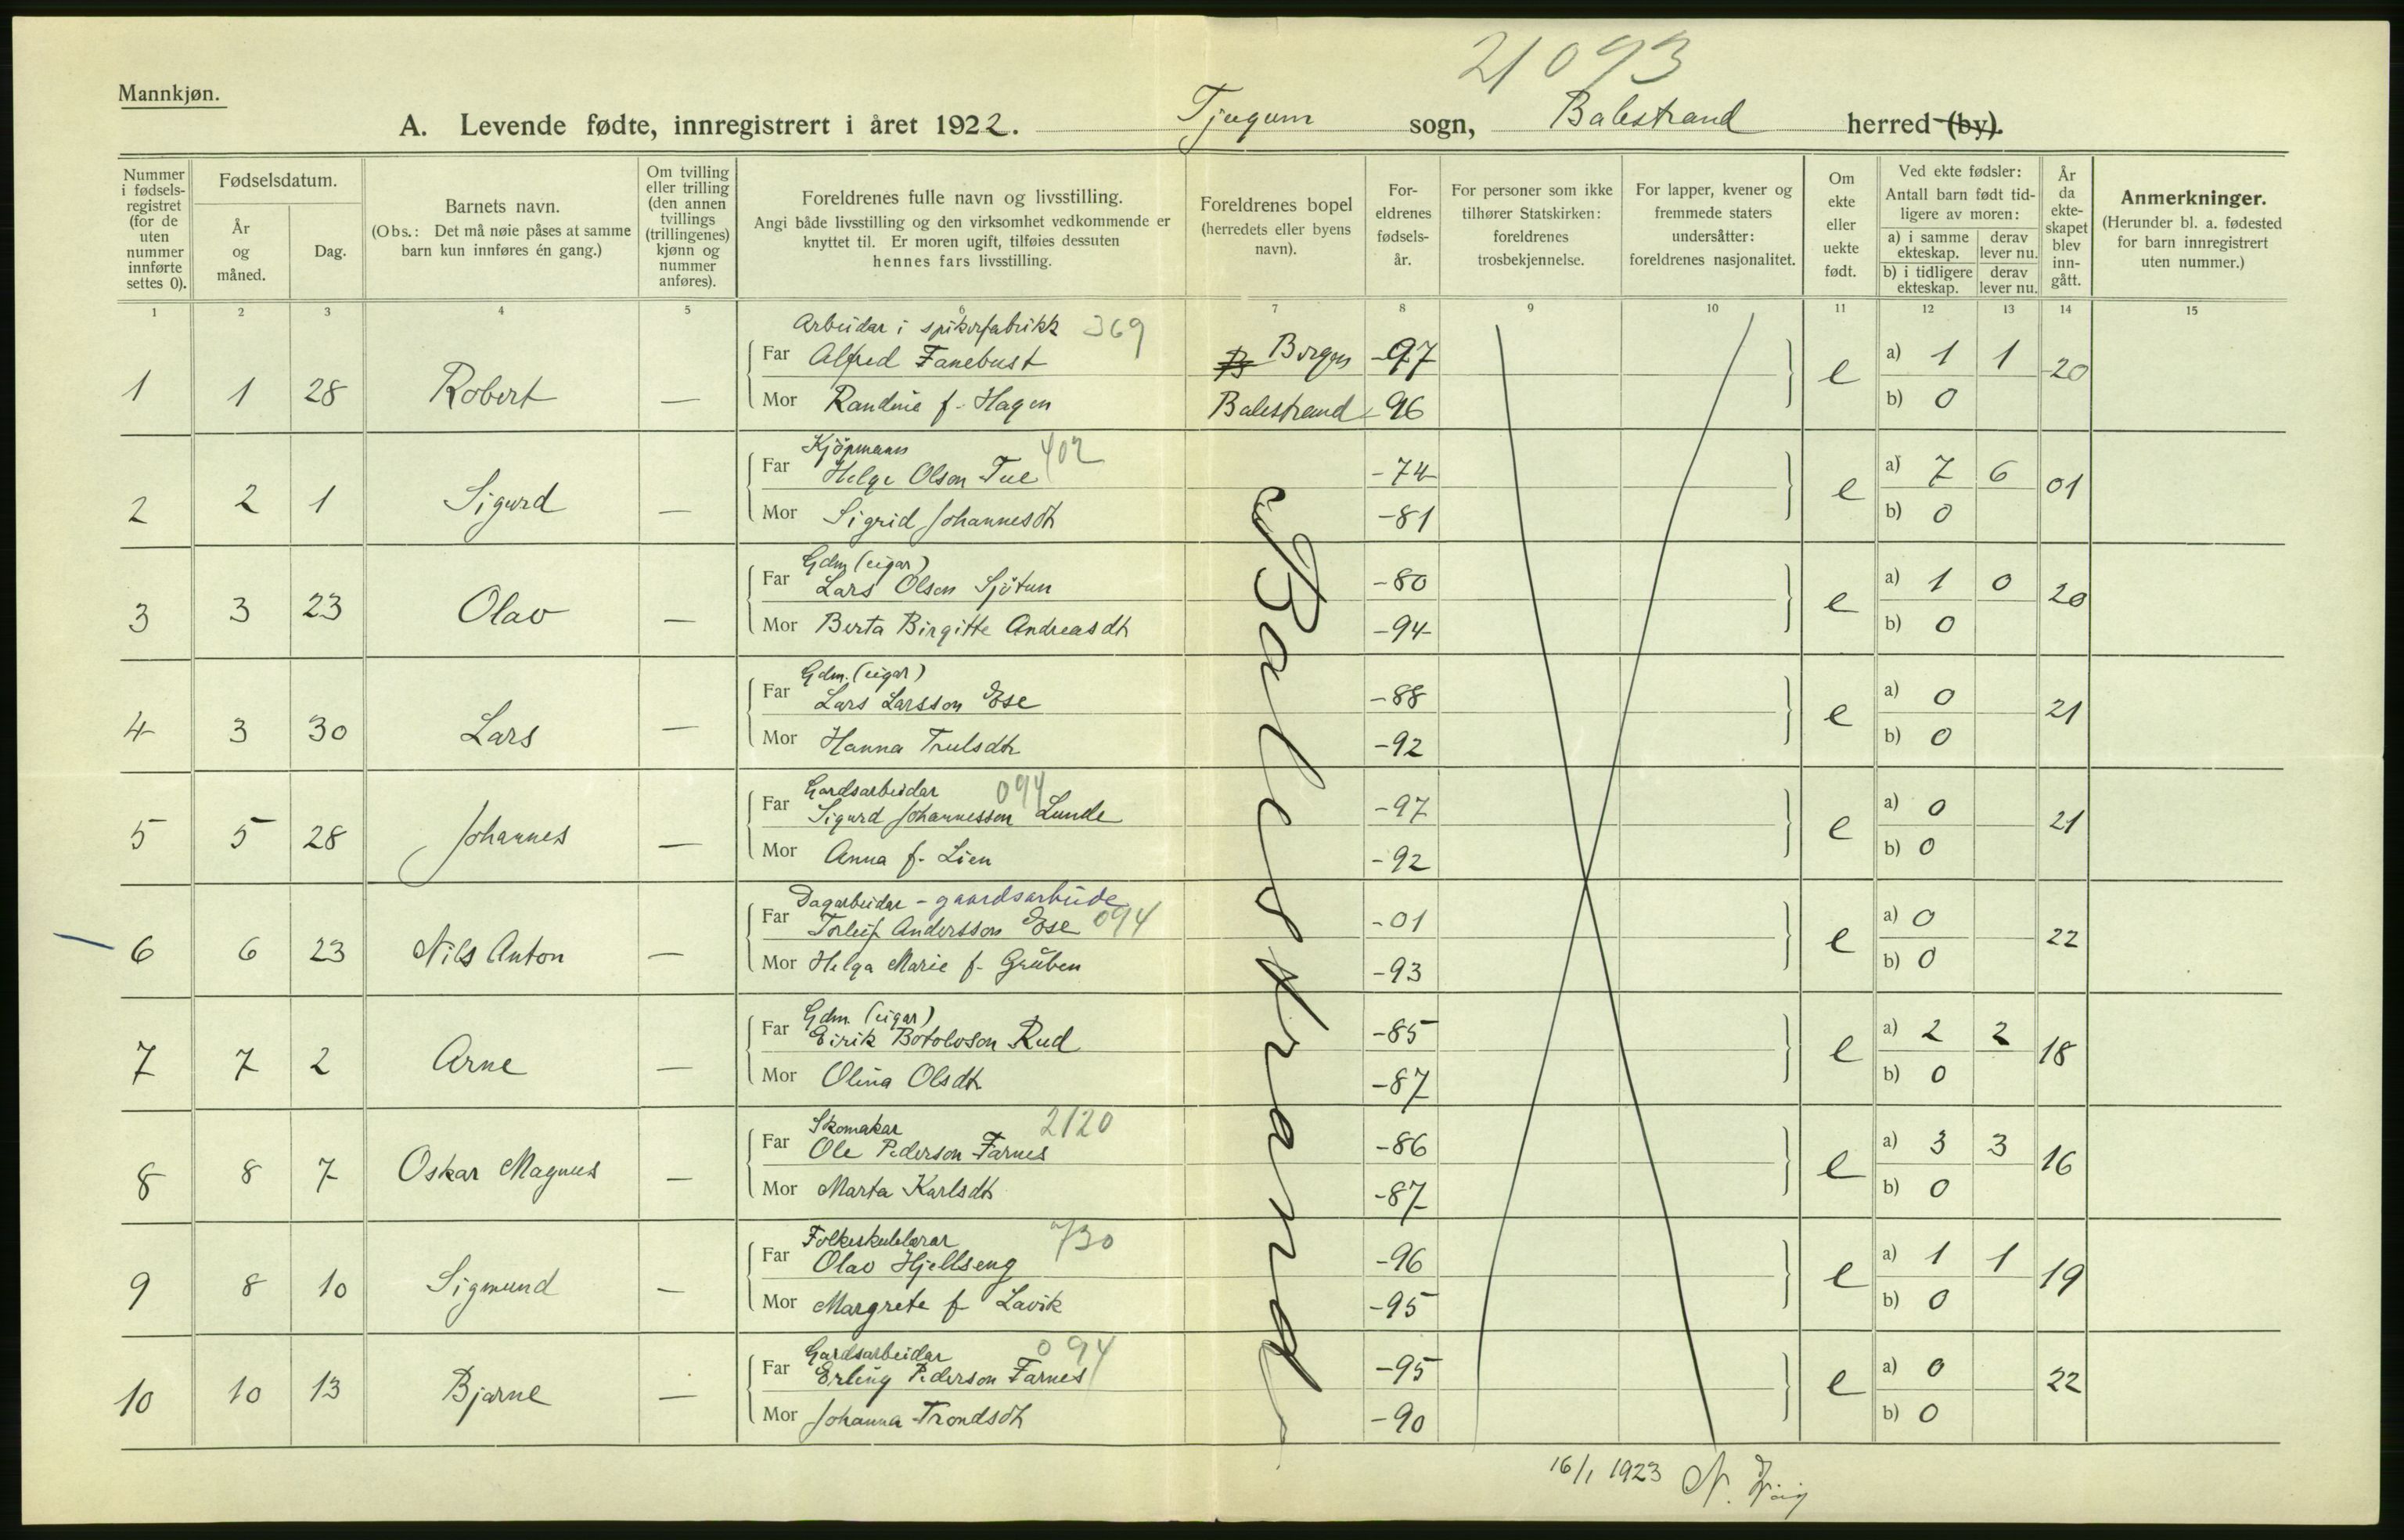 21093
Mannkjøn.
A. Levende fødte, innregistrert i året 1922. Tjugum sogn, Balestrand herred (by).
Nummer i fødselsregistret (for de uten nummer innførte settes 0).
Fødselsdatum.
År og måned.
Dag.
Barnets navn.
(Obs.: Det må nøie påses at samme barn kun innføres én gang.)
Om tvilling eller trilling (den annen tvillings (trillingenes) kjønn og nummer anføres).
Foreldrenes fulle navn og livsstilling.
Angi både livsstilling og den virksomhet vedkommende er knyttet til. Er moren ugift, tilføies dessuten hennes fars livsstilling.
Foreldrenes bopel (herredets eller byens navn).
Foreldrenes fødselsår.
For personer som ikke tilhører Statskirken: foreldrenes trosbekjennelse.
For lapper, kvener og fremmede staters undersåtter: foreldrenes nasjonalitet.
Om ekte eller uekte født.
Ved ekte fødsler: Antall barn født tidligere av moren:
a) i samme ekteskap. derav lever nu.
b) i tidligere ekteskap. derav lever nu.
År da ekteskapet blev inngått.
Anmerkninger.
(Herunder bl. a. fødested for barn innregistrert uten nummer.)
1 2 3 4 5 6 7 8 9 10 11 12 13 14 15
Arbeidar i spikerfabrikk 369
Far Alfred Fanebust Bergen -97 a) 1 1
1 1 28 Robert — e -20
Mor Randine f. Hagen Balestrand -96 b) 0
Kjöpmann 402
Far Helge Olson Tue -74 a) 7 6
2 2 1 Sigurd — e 01
Mor Sigrid Johannesdtr -81 b) 0
Gdm (eigar)
Far Lars Olson Sjötun -80 a) 1 0
3 3 23 Olav — e 20
Mor Berta Birgitte Andreasdtr -94 b) 0
Gdm. (eigar)
Far Lars Larsson Ese -88 a) 0
4 3 30 Lars — e 21
Mor Hanna Trulsdtr -92 b) 0
Gardsarbeidar 094
Far Sigurd Johannesson Lunde -97 a) 0
5 5 28 Johannes — e 21
Mor Anna f. Lien -92 b) 0
Dagarbeidar - gaardsarbeide
Far Torleif Andersson Ese 094 -01 a) 0
6 6 23 Nils Anton — e 22
Mor Helga Marie f. Grüben -93 b) 0
Gdm. (eigar)
Far Eirik Botolvson Rud -85 a) 2 2
7 7 2 Arne — e 18
Mor Olina Olsdtr -87 b) 0
Skomakar 2120
Far Ole Pederson Farnes -86 a) 3 3
8 8 7 Oskar Magnus — e 16
Mor Marta Karlsdtr -87 b) 0
Folkeskulelærar 730
Far Olav Hjellseng -96 a) 1 1
9 8 10 Sigmund — e 19
Mor Margrete f Lavik -95 b) 0
Gardsarbeidar 094
Far Erling Pederson Farnes -95 a) 0
10 10 13 Bjarne — e 22
Mor Johanna Trondsdtr -90 b) 0
Balestrand
16/1 1923